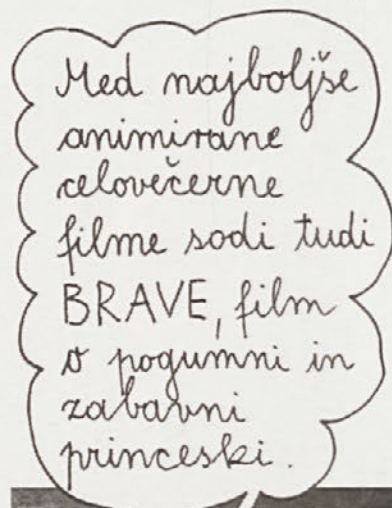 Med najboljše
animirane
celovečerne
filme sodi tudi
BRAVE, film
o pogumni in
zabavni
princeski.